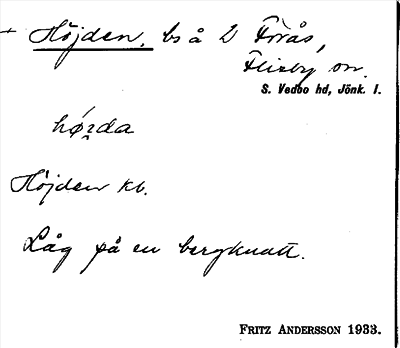 + Höjden, bs å 2 Förås,
Flisby sn.
S. Vedbo hd, Jönk. l.
Höjden kb.
Låg på en bergknatt.
FRITZ ANDERSSON 1933.